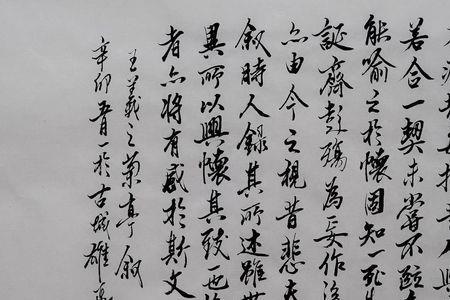 若合一契未嘗不臨
能喻之於懷固知一死
誕齊彭殤為妄作後
亦由今之視昔悲夫
叙時人録其所述雖世
異所以興懷其致一也
者亦將有感於斯文
王羲之蘭亭叙
辛卯 於古城雄